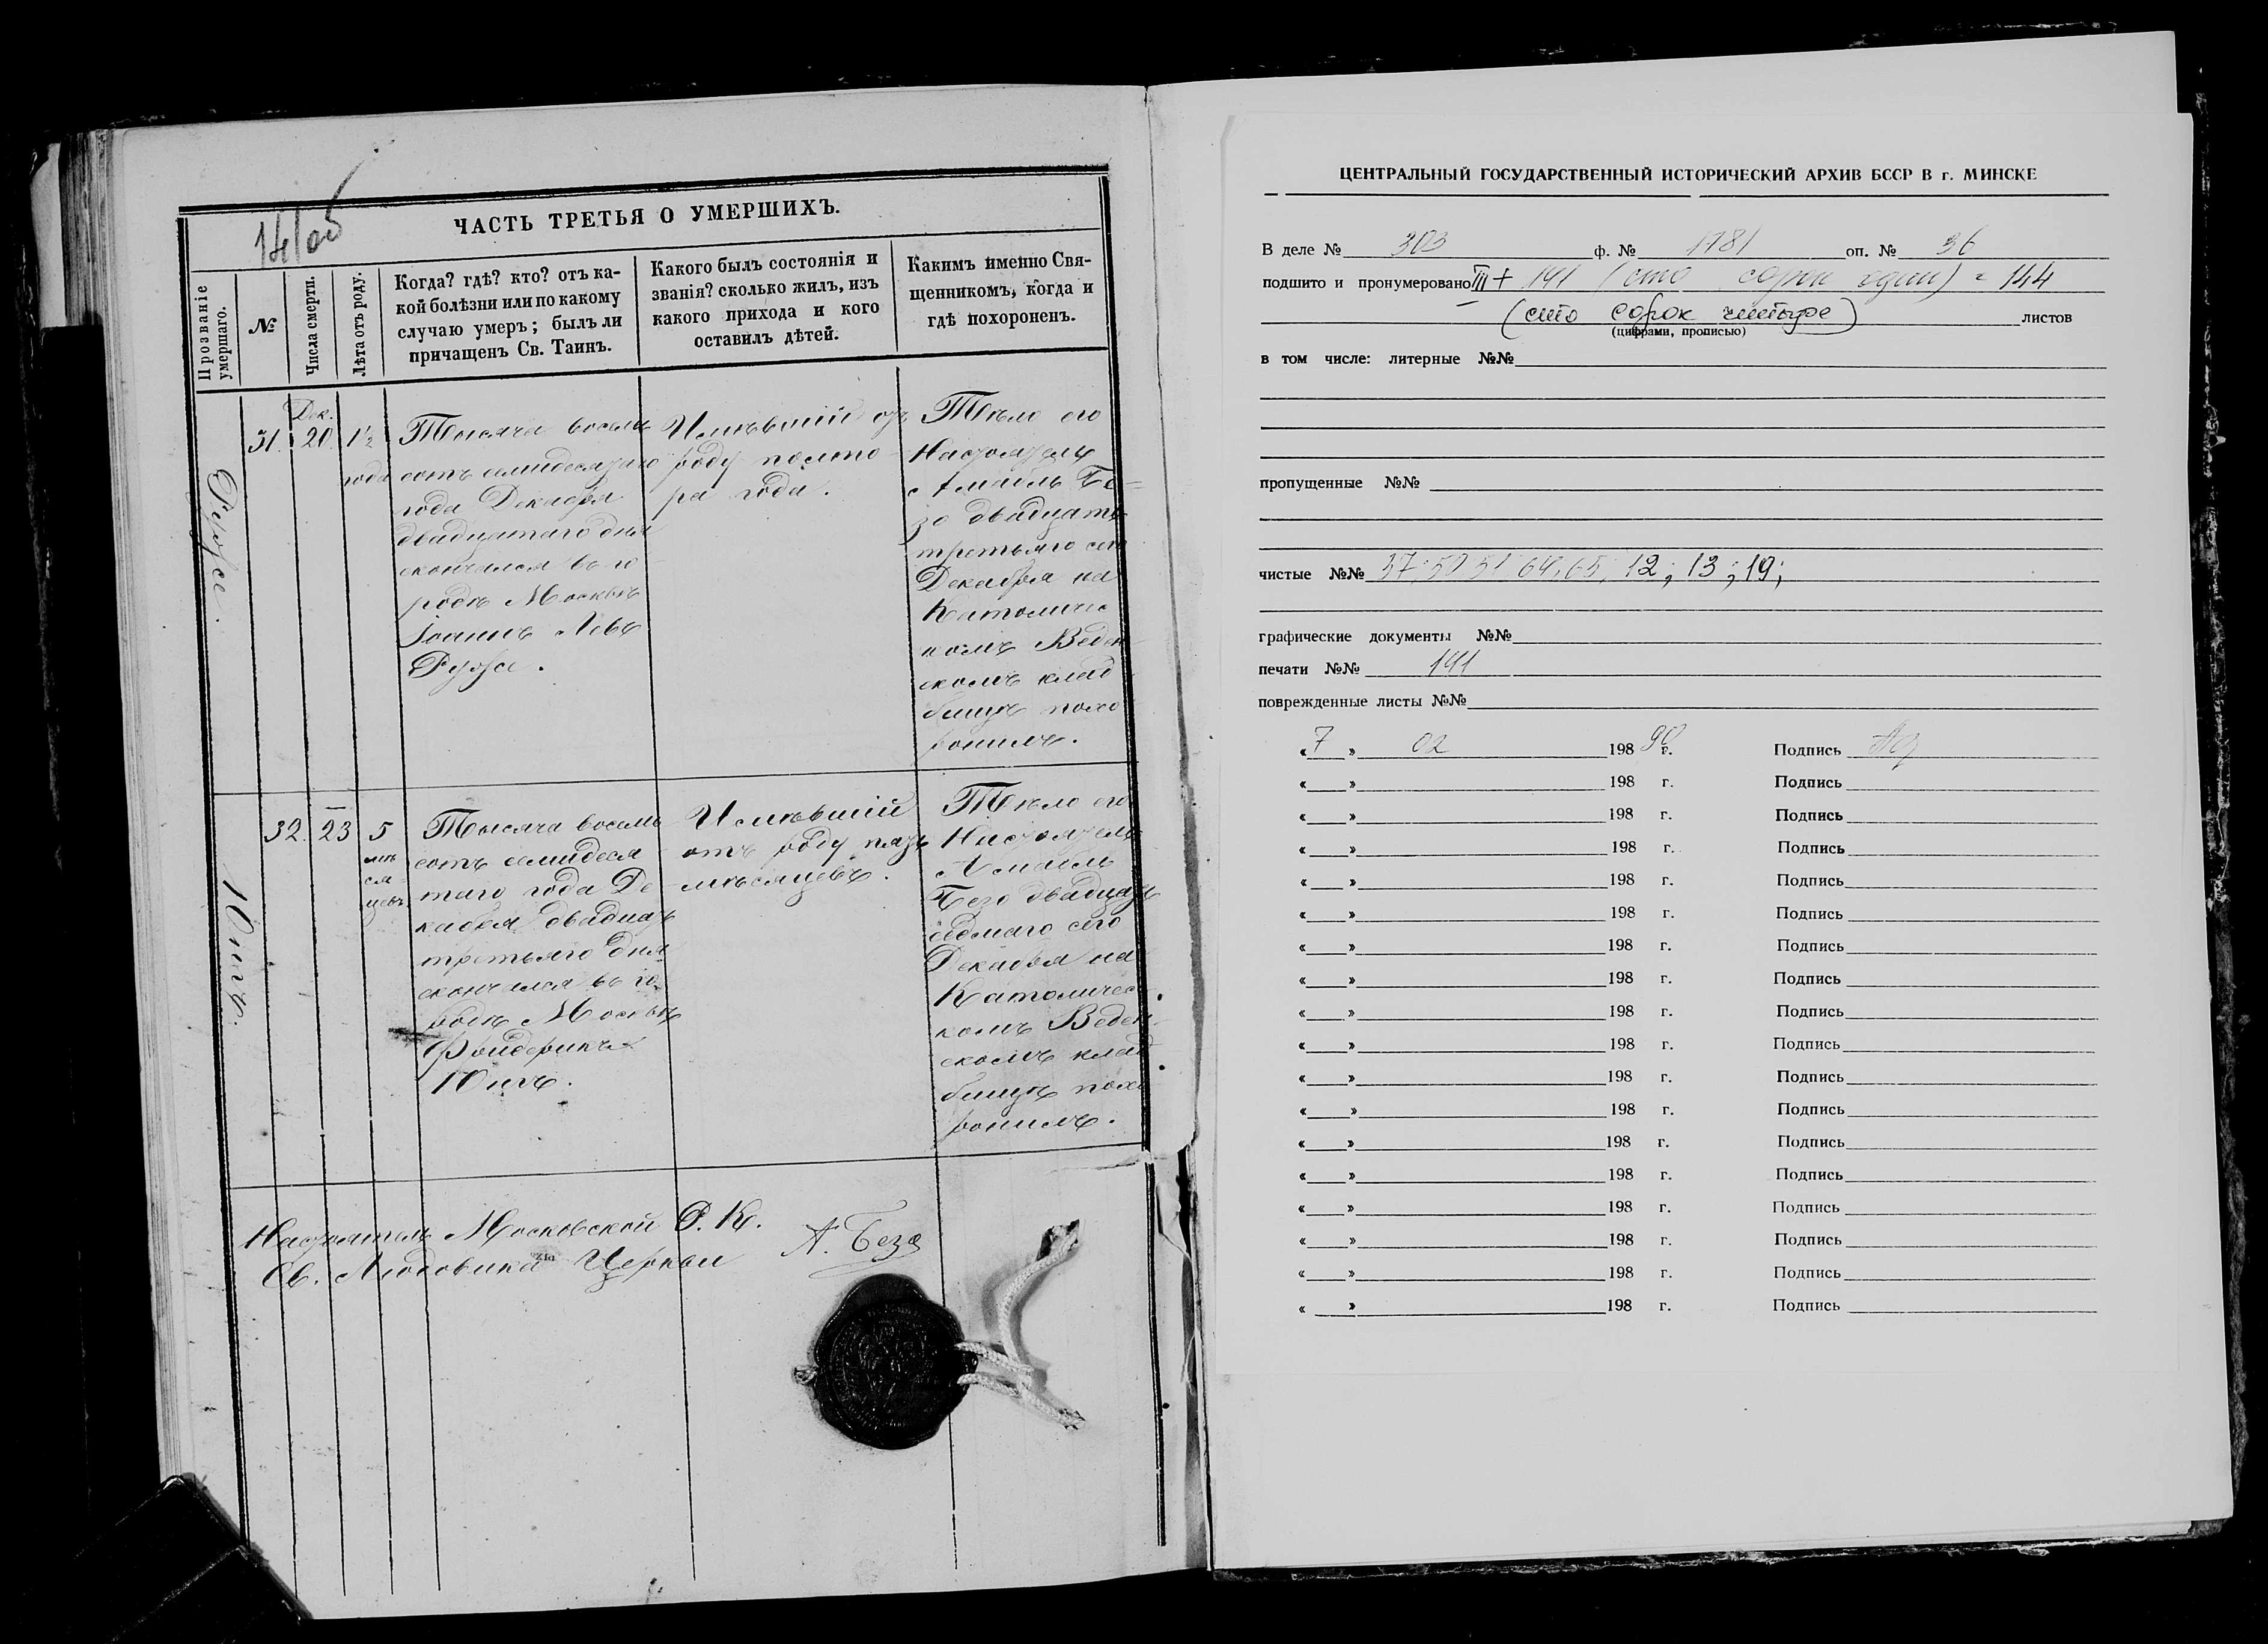 141об
ЧАСТЬ ТРЕТЬЯ О УМЕРШИХЪ.
Прозваніе умершаго.
№
Числа смерти.
Лѣта отъ роду.
Когда? гдѣ? кто? отъ ка-
кой болѣзни или по какому
случаю умеръ; былъ ли
причащенъ Св. Таинъ.
Какого былъ состоянія и
званія? сколько жилъ, изъ
какого прихода и кого
оставилъ дѣтей.
Какимъ именно Свя-
щенникомъ, когда и
гдѣ похороненъ.
31.
Дек.
20.
1½
года
Тысяча восемь
сотъ семидесятаго
года Декабря
двадцатаго дня
скончался въ го-
родѣ Москвѣ
Іоаннъ Левъ
Имѣвшій отъ
роду полто-
ра года.
Тѣло его
Настоятель
Амаиль Бе-
зо двадцать
третьяго сего
Декабря на
Католичес
комъ Веден-
скомъ клад
бищѣ похо
ронилъ.
32.
23
5
мѣ
ся-
цевъ.
Тысяча восемь
сотъ семидеся
таго года Де-
кабря двадцать
третьяго дня
скончался въ го-
родѣ Москвѣ
Фридерикъ
Юнгъ.
Юнгъ.
Имѣвшій
отъ роду пять
мѣсяцевъ.
Тѣло его
Настоятель
Амаиль
Безо двадцать
седмаго сего
Декабря на
Католичес-
комъ Веден-
скомъ клад
бищѣ похо
ронилъ.
Настоятель Московской Р. К.
Св. Людовика Церкви А. Безо
ЦЕНТРАЛЬНЫЙ ГОСУДАРСТВЕННЫЙ ИСТОРИЧЕСКИЙ АРХИВ БССР В г. МИНСКЕ
В деле № 303 ф. № 1781 оп. № 36
подшито и пронумеровано III + 141 (сто сорок один) = 144
(сто сорок четыре) листов
(цифрами, прописью)
в том числе: литерные №№
пропущенные №№
чистые №№ 37; 50 51 64, 65, 12; 13; 19;
графические документы №№
печати №№ 141
поврежденные листы №№
«7» 02 198 90 г. Подпись
« » 198 г. Подпись
« » 198 г. Подпись
« » 198 г. Подпись
« » 198 г. Подпись
« » 198 г. Подпись
« » 198 г. Подпись
« » 198 г. Подпись
« » 198 г. Подпись
« » 198 г. Подпись
« » 198 г. Подпись
« » 198 г. Подпись
« » 198 г. Подпись
« » 198 г. Подпись
« » 198 г. Подпись
« » 198 г. Подпись
« » 198 г. Подпись
« » 198 г. Подпись